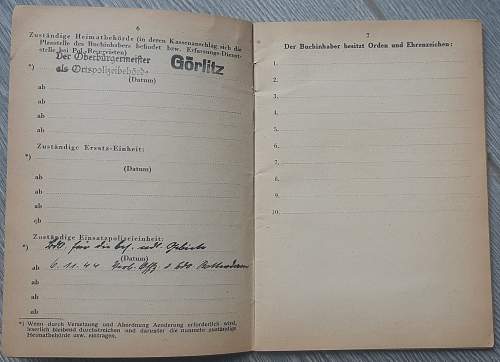 6
Zuständige Heimatbehörde (in deren Kassenanschlag sich die
Planstelle des Buchinhabers befindet bzw. Erfassungs-Dienst-
stelle bei Pol.-Reservisten)
Der Oberbürgermeister
als Ortspolizeibehörde
Görlitz
*)
(Datum)
ab
ab
ab
ab
Zuständige Ersatz-Einheit:
*)
(Datum)
ab
ab
ab
ab
Zuständige Einsatzpolizeieinheit:
*) BdO. für die bes. ndl. Gebiete
(Datum)
ab 6.11.44
ab
ab
ab
*) Wenn durch Versetzung und Abordnung Aenderung erforderlich wird,
leserlich bleibend durchstreichen und darunter die nunmehr zuständige
Heimatbehörde usw. eintragen.
7
Der Buchinhaber besitzt Orden und Ehrenzeichen:
1.
2.
3.
4.
5.
6.
7.
8.
9.
10.